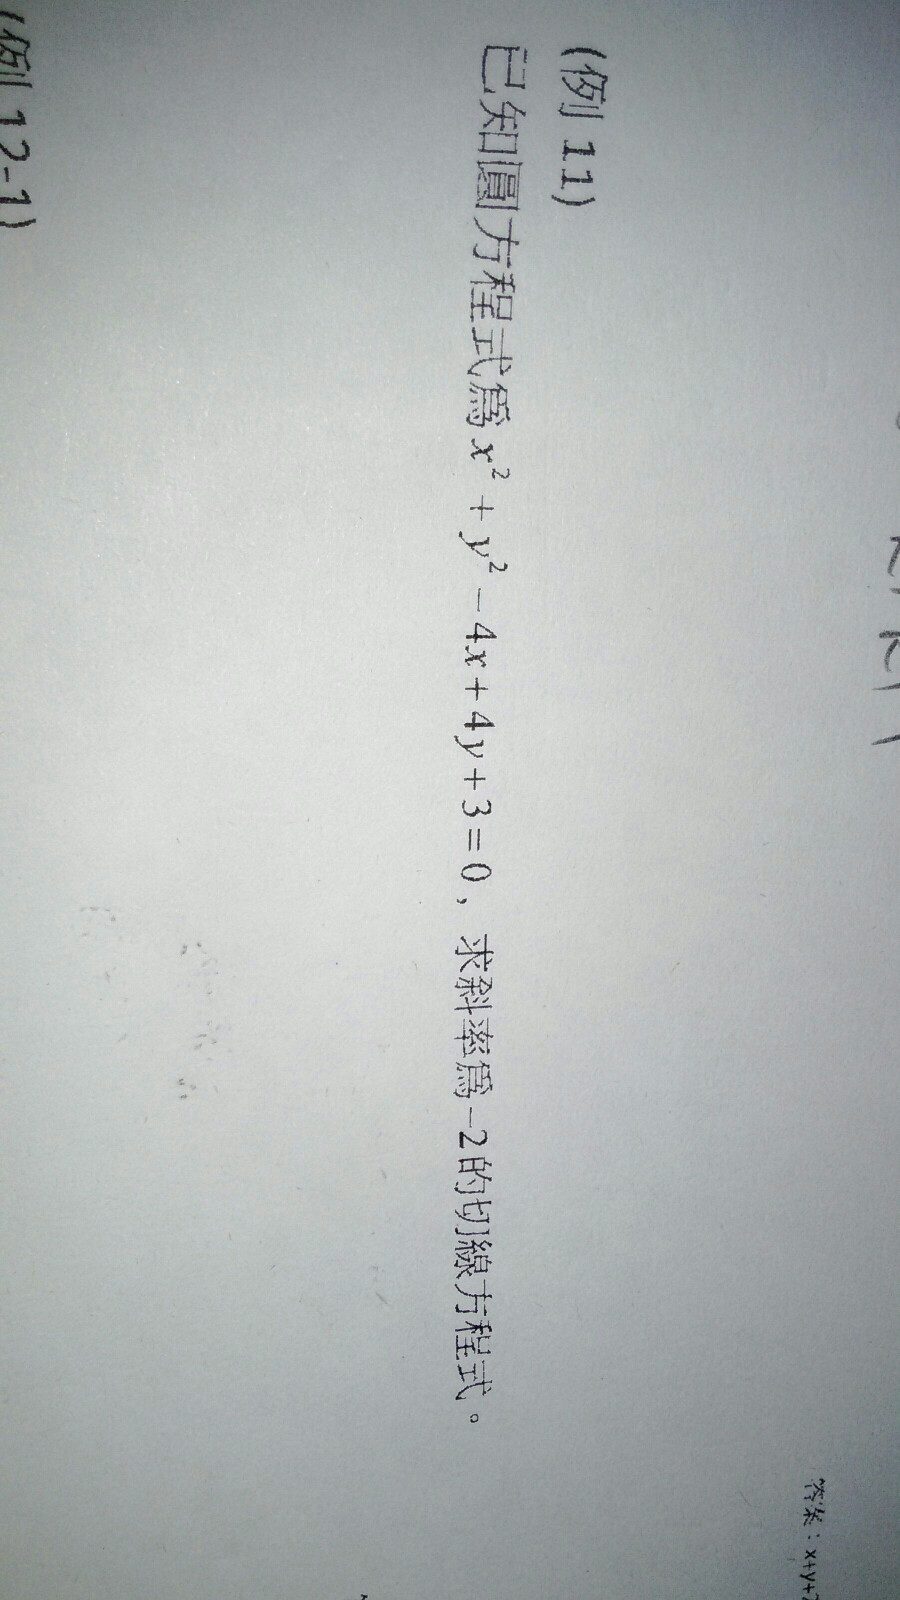 答案：x+y+
(例 11)
已知圓方程式為 x² + y² − 4x + 4y + 3 = 0，求斜率為 −2 的切線方程式。
(例 12-1)